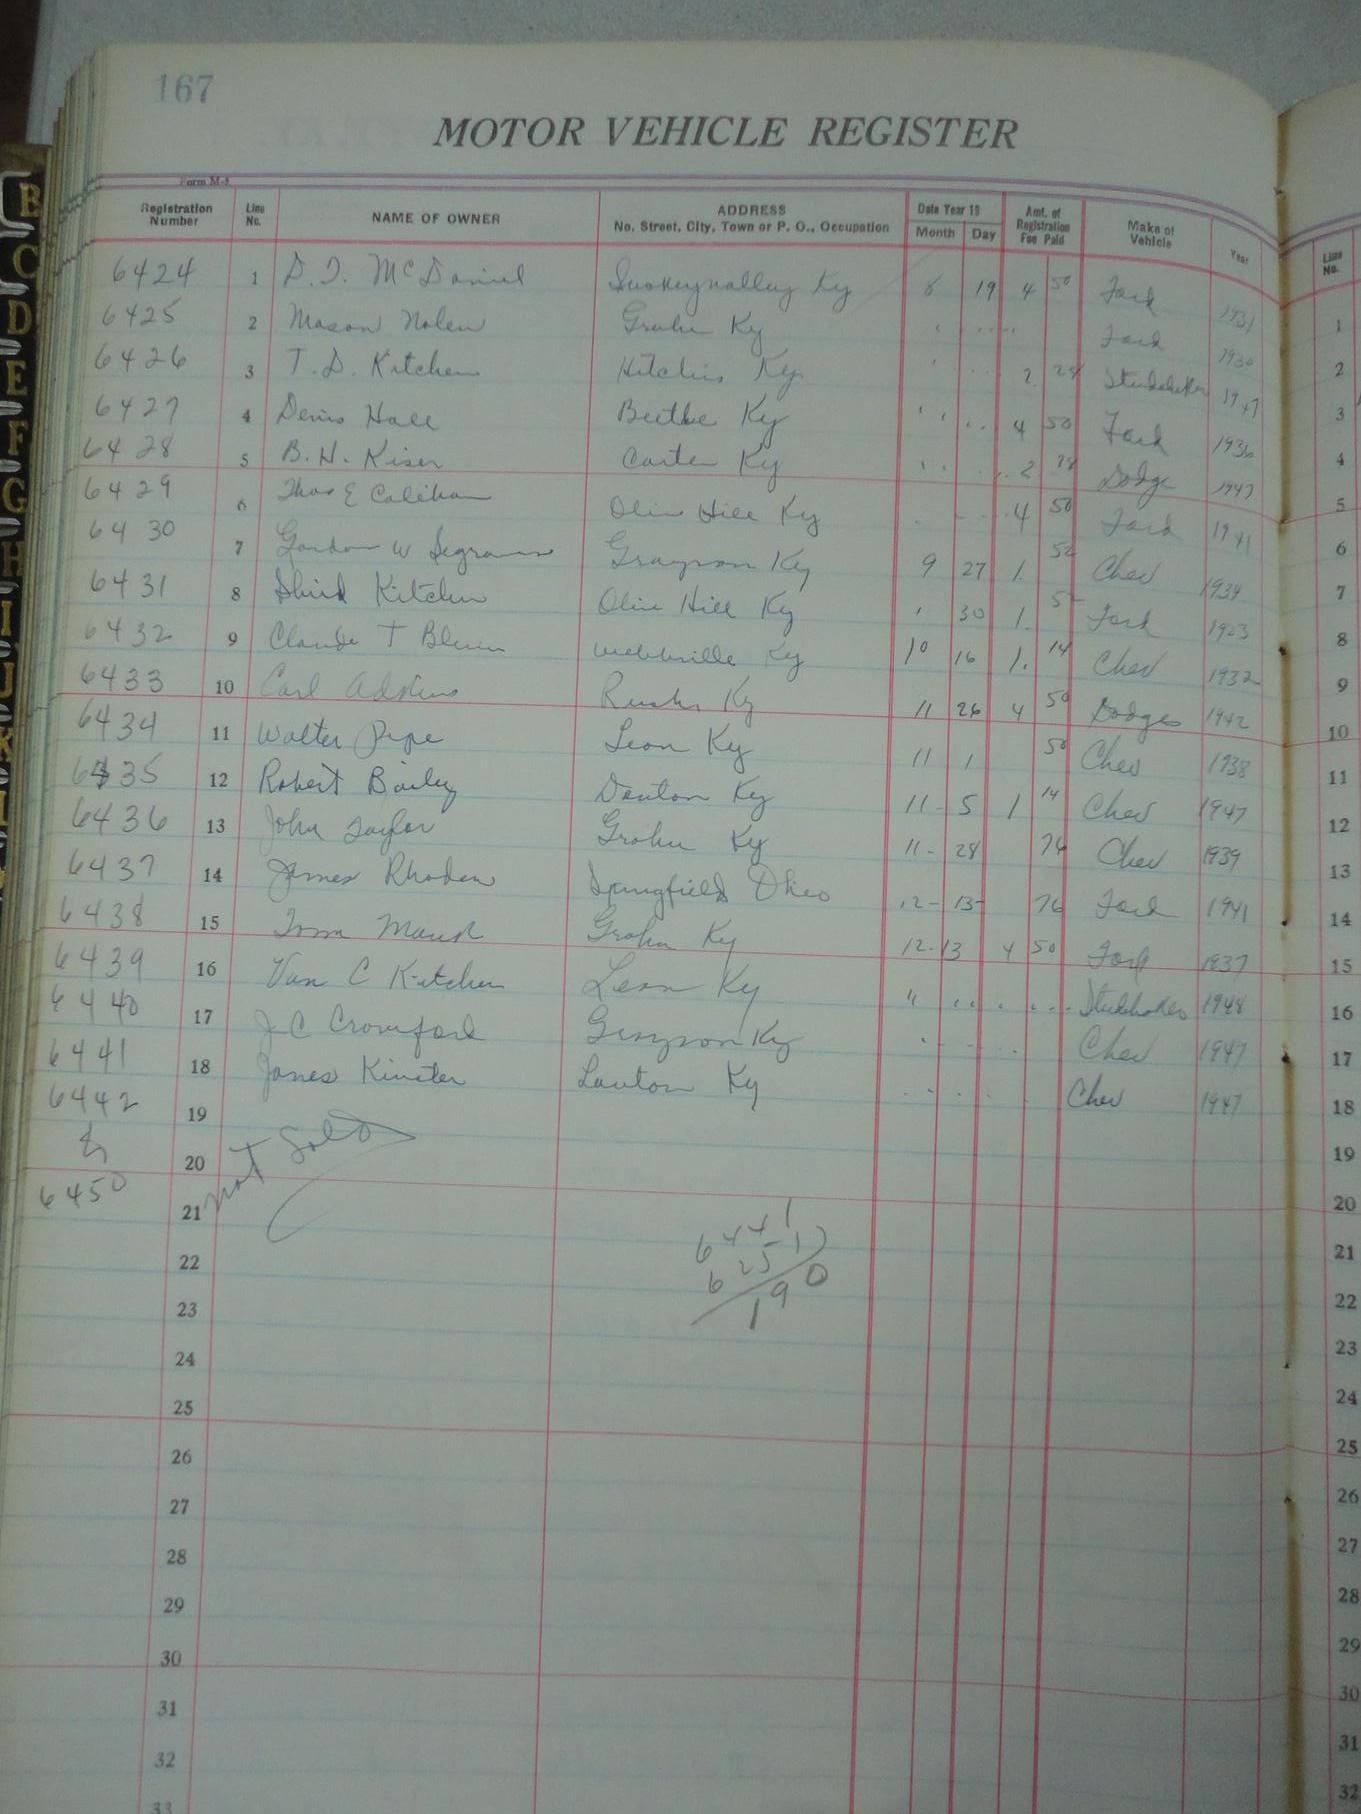 167
MOTOR VEHICLE REGISTER
Form M-3
Registration Number Line No. NAME OF OWNER ADDRESS No. Street, City, Town or P. O., Occupation Date Year 19 Month Day Amt. of Registration Fee Paid Make of Vehicle Year
6424 1 D. T. McDaniel Smokeyvalley Ky 8 19 4 50 Ford 1931
6425 2 Mason Nolen Grahn Ky " " " " Ford 1930
6426 3 T. D. Kitchen Hitchins Ky " " 2 28 Studebaker 1947
6427 4 Denis Hall Beetle Ky " " 4 50 Ford 1936
6428 5 B. H. Kiser Carter Ky " " 2 28 Dodge 1947
6429 6 Thos E Calihan Olive Hill Ky " " 4 50 Ford 1941
6430 7 Gordon W Grayson Ky 9 27 1. 52 Chev 1934
6431 8 Kitchen Olive Hill Ky " 30 1. 5 Ford 1923
6432 9 Claude T Webbville Ky 10 16 1. 14 Chev 1932
6433 10 Carl Adkins Rush Ky 11 26 4 50 Dodge 1942
6434 11 Walter Pope Leon Ky 11 1 50 Chev 1938
6435 12 Robert Bailey Denton Ky 11- 5 1 14 Chev 1947
6436 13 John Taylor Grahn Ky 11- 28 76 Chev 1939
6437 14 James Rhoden Springfield Ohio 12- 13- 76 Ford 1941
6438 15 Grahn Ky 12-13 4 50 Ford 1937
6439 16 Van C Kitchen Leon Ky " " " " Studebaker 1948
6440 17 J C Crawford Grayson Ky " " " Chev 1947
6441 18 James Kinster Lawton Ky " " " Chev 1947
6442 19
to 20 not Sold
6450 21
6441
22
6251
23
190
24
25
26
27
28
29
30
31
32
33